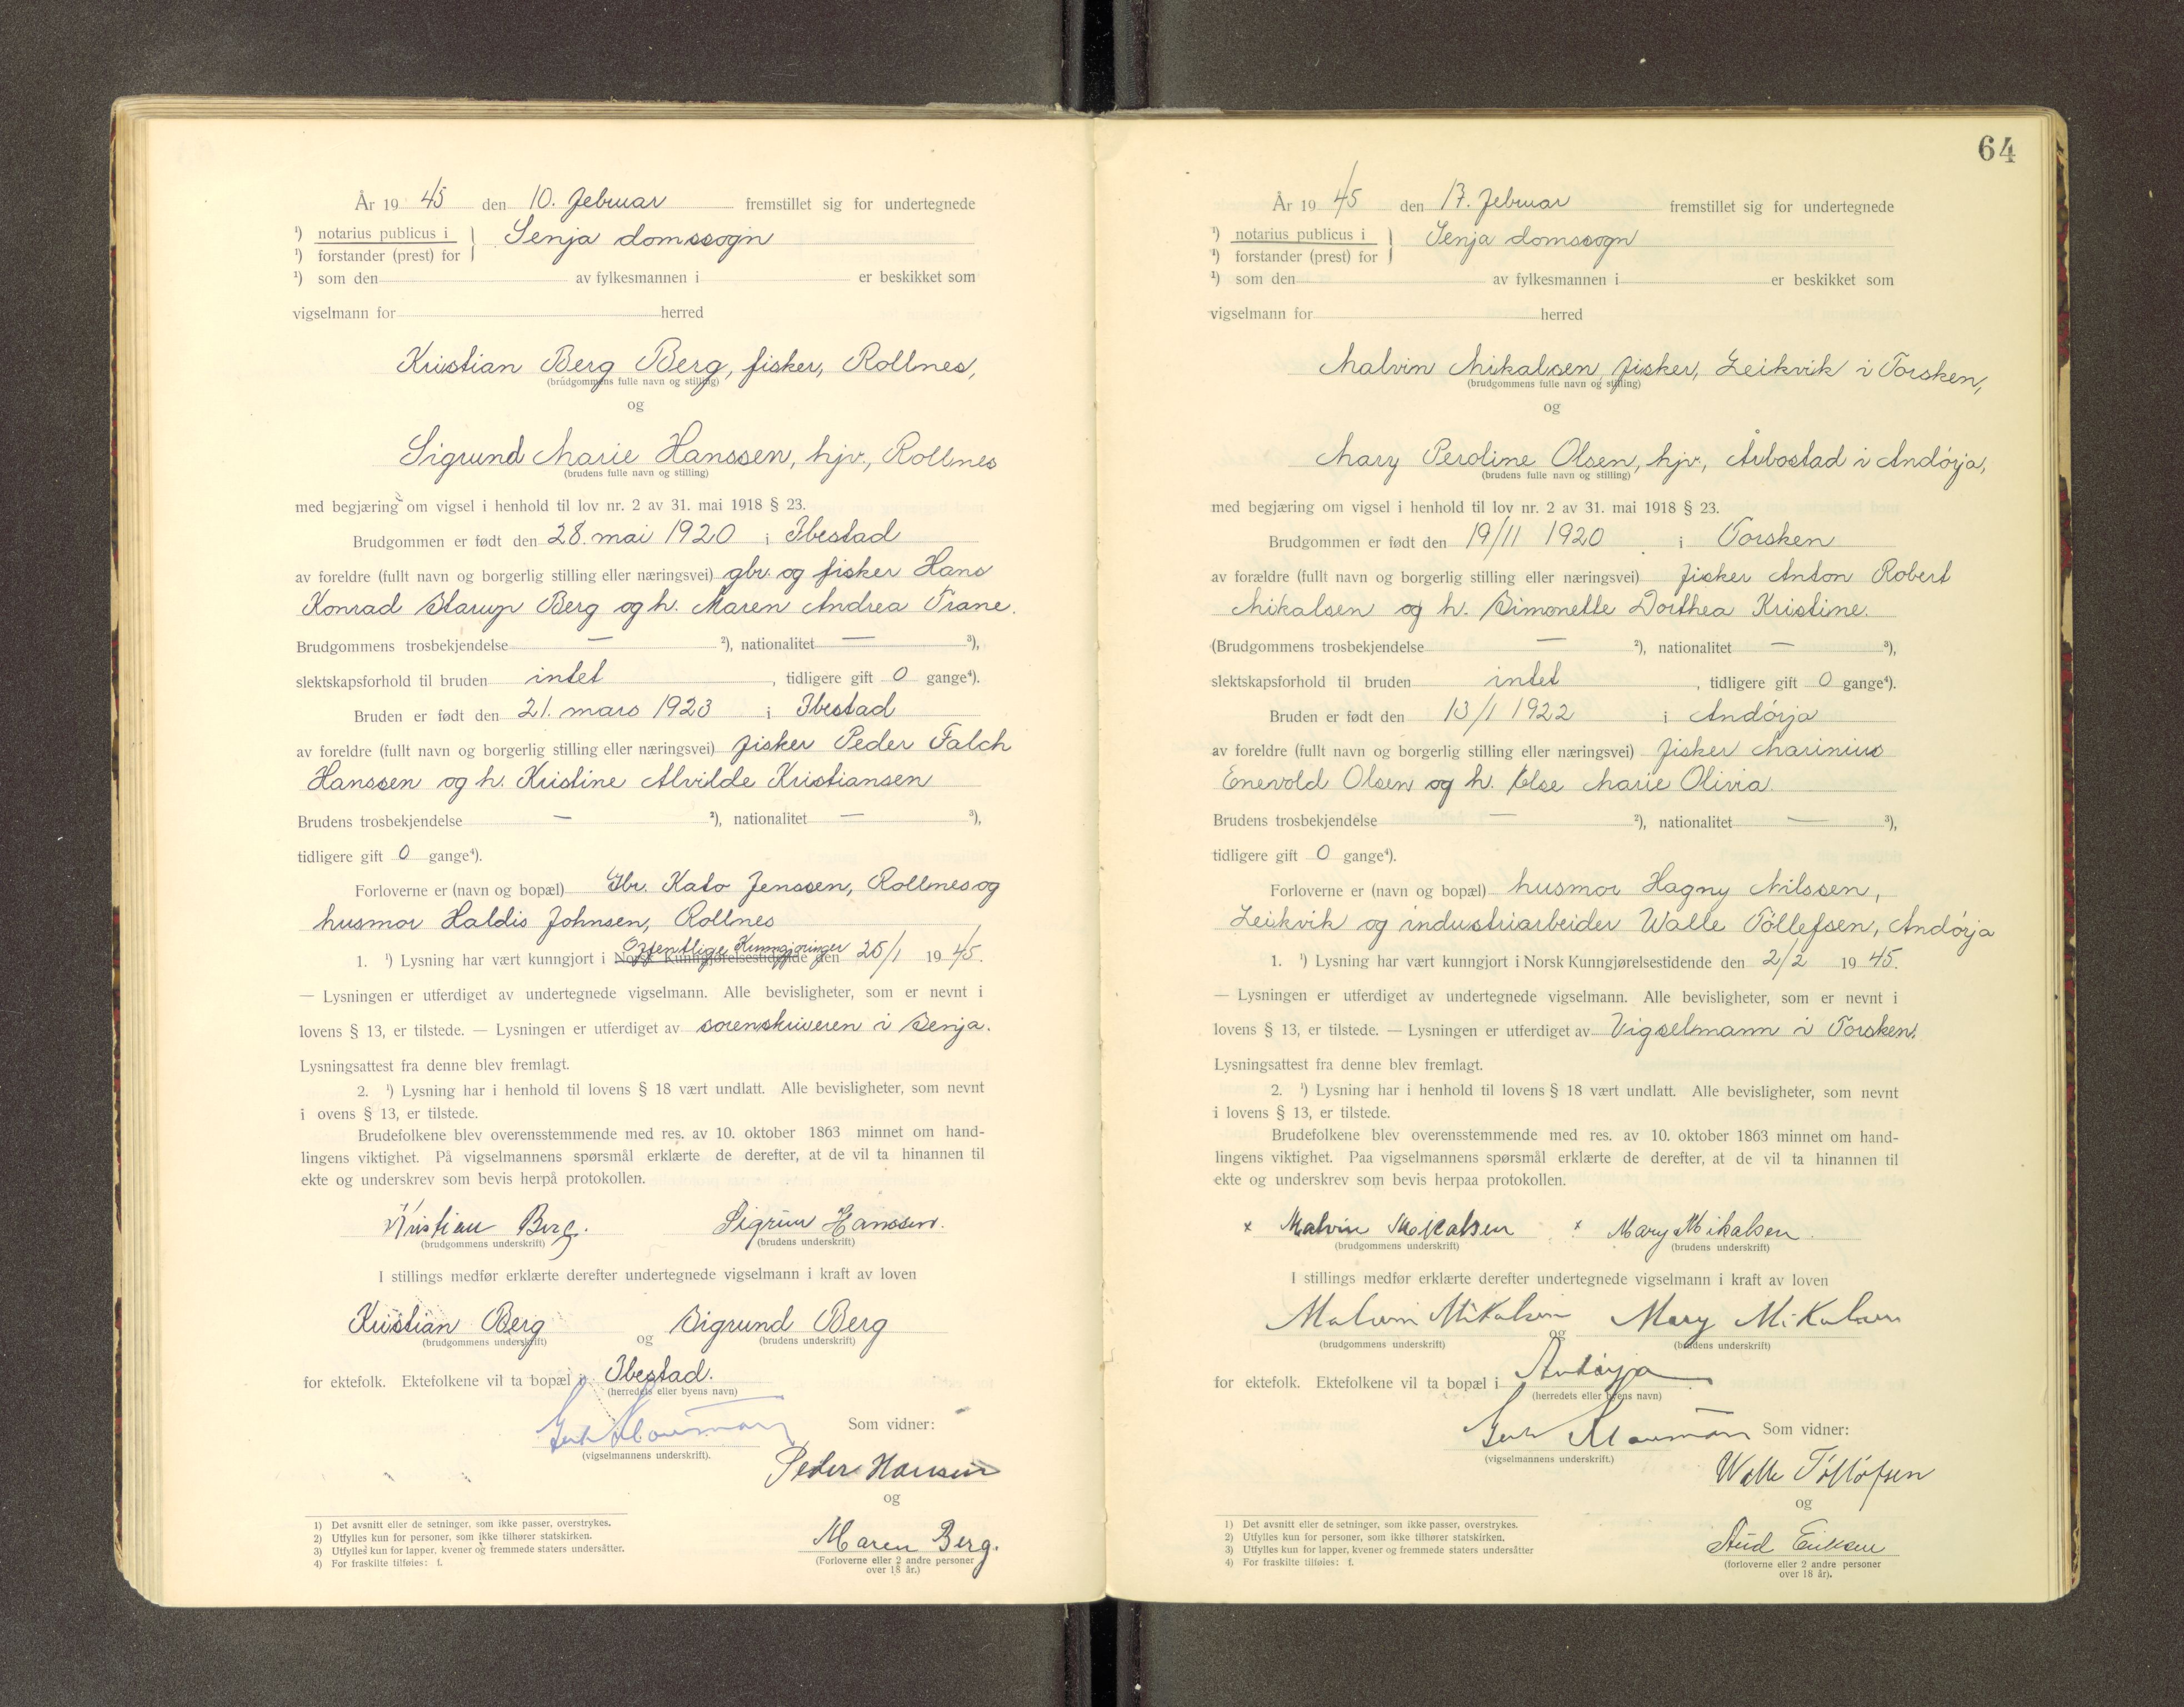 År 19 45 den 10. februar fremstillet sig for undertegnede
¹) notarius publicus i } Senja domssogn
¹) forstander (prest) for
¹) som den av fylkesmannen i er beskikket som
vigselmann for herred
Kristian Berg Berg, fisker, Rollnes,
(brudgommens fulle navn og stilling)
og
Sigrund Marie Hanssen, hjv., Rollnes
(brudens fulle navn og stilling)
med begjæring om vigsel i henhold til lov nr. 2 av 31. mai 1918 § 23.
Brudgommen er født den 28. mai 1920 i Ibestad
av foreldre (fullt navn og borgerlig stilling eller næringsvei) gbr. og fisker Hans
Konrad Starup Berg og h. Maren Andrea Trane.
Brudgommens trosbekjendelse — ²), nationalitet — ³),
slektskapsforhold til bruden intet, tidligere gift 0 gange⁴).
Bruden er født den 21. mars 1923 i Ibestad
av foreldre (fullt navn og borgerlig stilling eller næringsvei) fisker Peder Falch
Hanssen og h. Kristine Alvilde Kristiansen
Brudens trosbekjendelse — ²), nationalitet — ³),
tidligere gift 0 gange⁴).
Forloverne er (navn og bopæl) Gbr. Kato Jenssen, Rollnes og
husmor Haldis Johnsen, Rollnes
Offentlige Kunngjøringer
1. ¹) Lysning har vært kunngjort i Norsk Kunngjørelsestidende den 26/1 19 45.
— Lysningen er utferdiget av undertegnede vigselmann. Alle bevisligheter, som er nevnt i
lovens § 13, er tilstede. — Lysningen er utferdiget av sorenskriveren i Senja.
Lysningsattest fra denne blev fremlagt.
2. ¹) Lysning har i henhold til lovens § 18 vært undlatt. Alle bevisligheter, som nevnt
i ovens § 13, er tilstede.
Brudefolkene blev overensstemmende med res. av 10. oktober 1863 minnet om hand-
lingens viktighet. På vigselmannens spørsmål erklærte de derefter, at de vil ta hinannen til
ekte og underskrev som bevis herpå protokollen.
Kristian Berg. Sigrun Hanssen.
(brudgommens underskrift) (brudens underskrift)
I stillings medfør erklærte derefter undertegnede vigselmann i kraft av loven
Kristian Berg og Sigrund Berg
(brudgommens underskrift) (brudens underskrift)
for ektefolk. Ektefolkene vil ta bopæl i Ibestad.
(herredets eller byens navn)
Som vidner:
(vigselmannens underskrift).
Peder Hansen
og
Maren Berg.
(Forloverne eller 2 andre personer
over 18 år.)
1) Det avsnitt eller de setninger, som ikke passer, overstrykes.
2) Utfylles kun for personer, som ikke tilhører statskirken.
3) Utfylles kun for lapper, kvener og fremmede staters undersåtter.
4) For fraskilte tilføies: f.
64
År 19 45 den 17. februar fremstillet sig for undertegnede
¹) notarius publicus i } Senja domssogn
¹) forstander (prest) for
¹) som den av fylkesmannen i er beskikket som
vigselmann for herred
Malvin Mikalsen, fisker, Leikvik i Torsken,
(brudgommens fulle navn og stilling)
og
Mary Peroline Olsen, hjv., Årbostad i Andørja,
(brudens fulle navn og stilling)
med begjæring om vigsel i henhold til lov nr. 2 av 31. mai 1918 § 23.
Brudgommen er født den 19/11 1920 i Torsken
av forældre (fullt navn og borgerlig stilling eller næringsvei) fisker Anton Robert
Mikalsen og h. Simonette Dorthea Kristine.
(Brudgommens trosbekjendelse — ²), nationalitet — ³),
slektskapsforhold til bruden intet, tidligere gift 0 gange⁴).
Bruden er født den 13/1 1922 i Andørja
av foreldre (fullt navn og borgerlig stilling eller næringsvei) fisker Marinius
Enevold Olsen og h. Else Marie Olivia.
Brudens trosbekjendelse — ²), nationalitet — ³),
tidligere gift 0 gange⁴).
Forloverne er (navn og bopæl) husmor Hagny Nilssen,
Leikvik og industriarbeider Walle Tøllefsen, Andørja
1. ¹) Lysning har vært kunngjort i Norsk Kunngjørelsestidende den 2/2 19 45.
— Lysningen er utferdiget av undertegnede vigselmann. Alle bevisligheter, som er nevnt i
lovens § 13, er tilstede. — Lysningen er utferdiget av Vigselmann i Torsken.
Lysningsattest fra denne blev fremlagt.
2. ¹) Lysning har i henhold til lovens § 18 vært undlatt. Alle bevisligheter, som nevnt
i lovens § 13, er tilstede.
Brudefolkene blev overensstemmende med res. av 10. oktober 1863 minnet om hand-
lingens viktighet. Paa vigselmannens spørsmål erklærte de derefter, at de vil ta hinannen til
ekte og underskrev som bevis herpaa protokollen.
x Malvin Mikalsen x Mary Mikalsen.
(brudgommens underskrift) (brudens underskrift)
I stillings medfør erklærte derefter undertegnede vigselmann i kraft av loven
Malvin Mikalsen og Mary Mikalsen
(brudgommens underskrift) (brudens underskrift)
for ektefolk. Ektefolkene vil ta bopæl i Andørja
(herredets eller byens navn)
Som vidner:
(vigselmannens underskrift.)
Walle Tølløfsen
og
Eriksen
(forloverne eller 2 andre personer
over 18 år).
1) Det avsnitt eller de setninger, som ikke passer, overstrykes.
2) Utfylles kun for personer, som ikke tilhører statskirken.
3) Utfylles kun for lapper, kvener og fremmede staters undersåtter
4) For fraskilte tilføies: f.